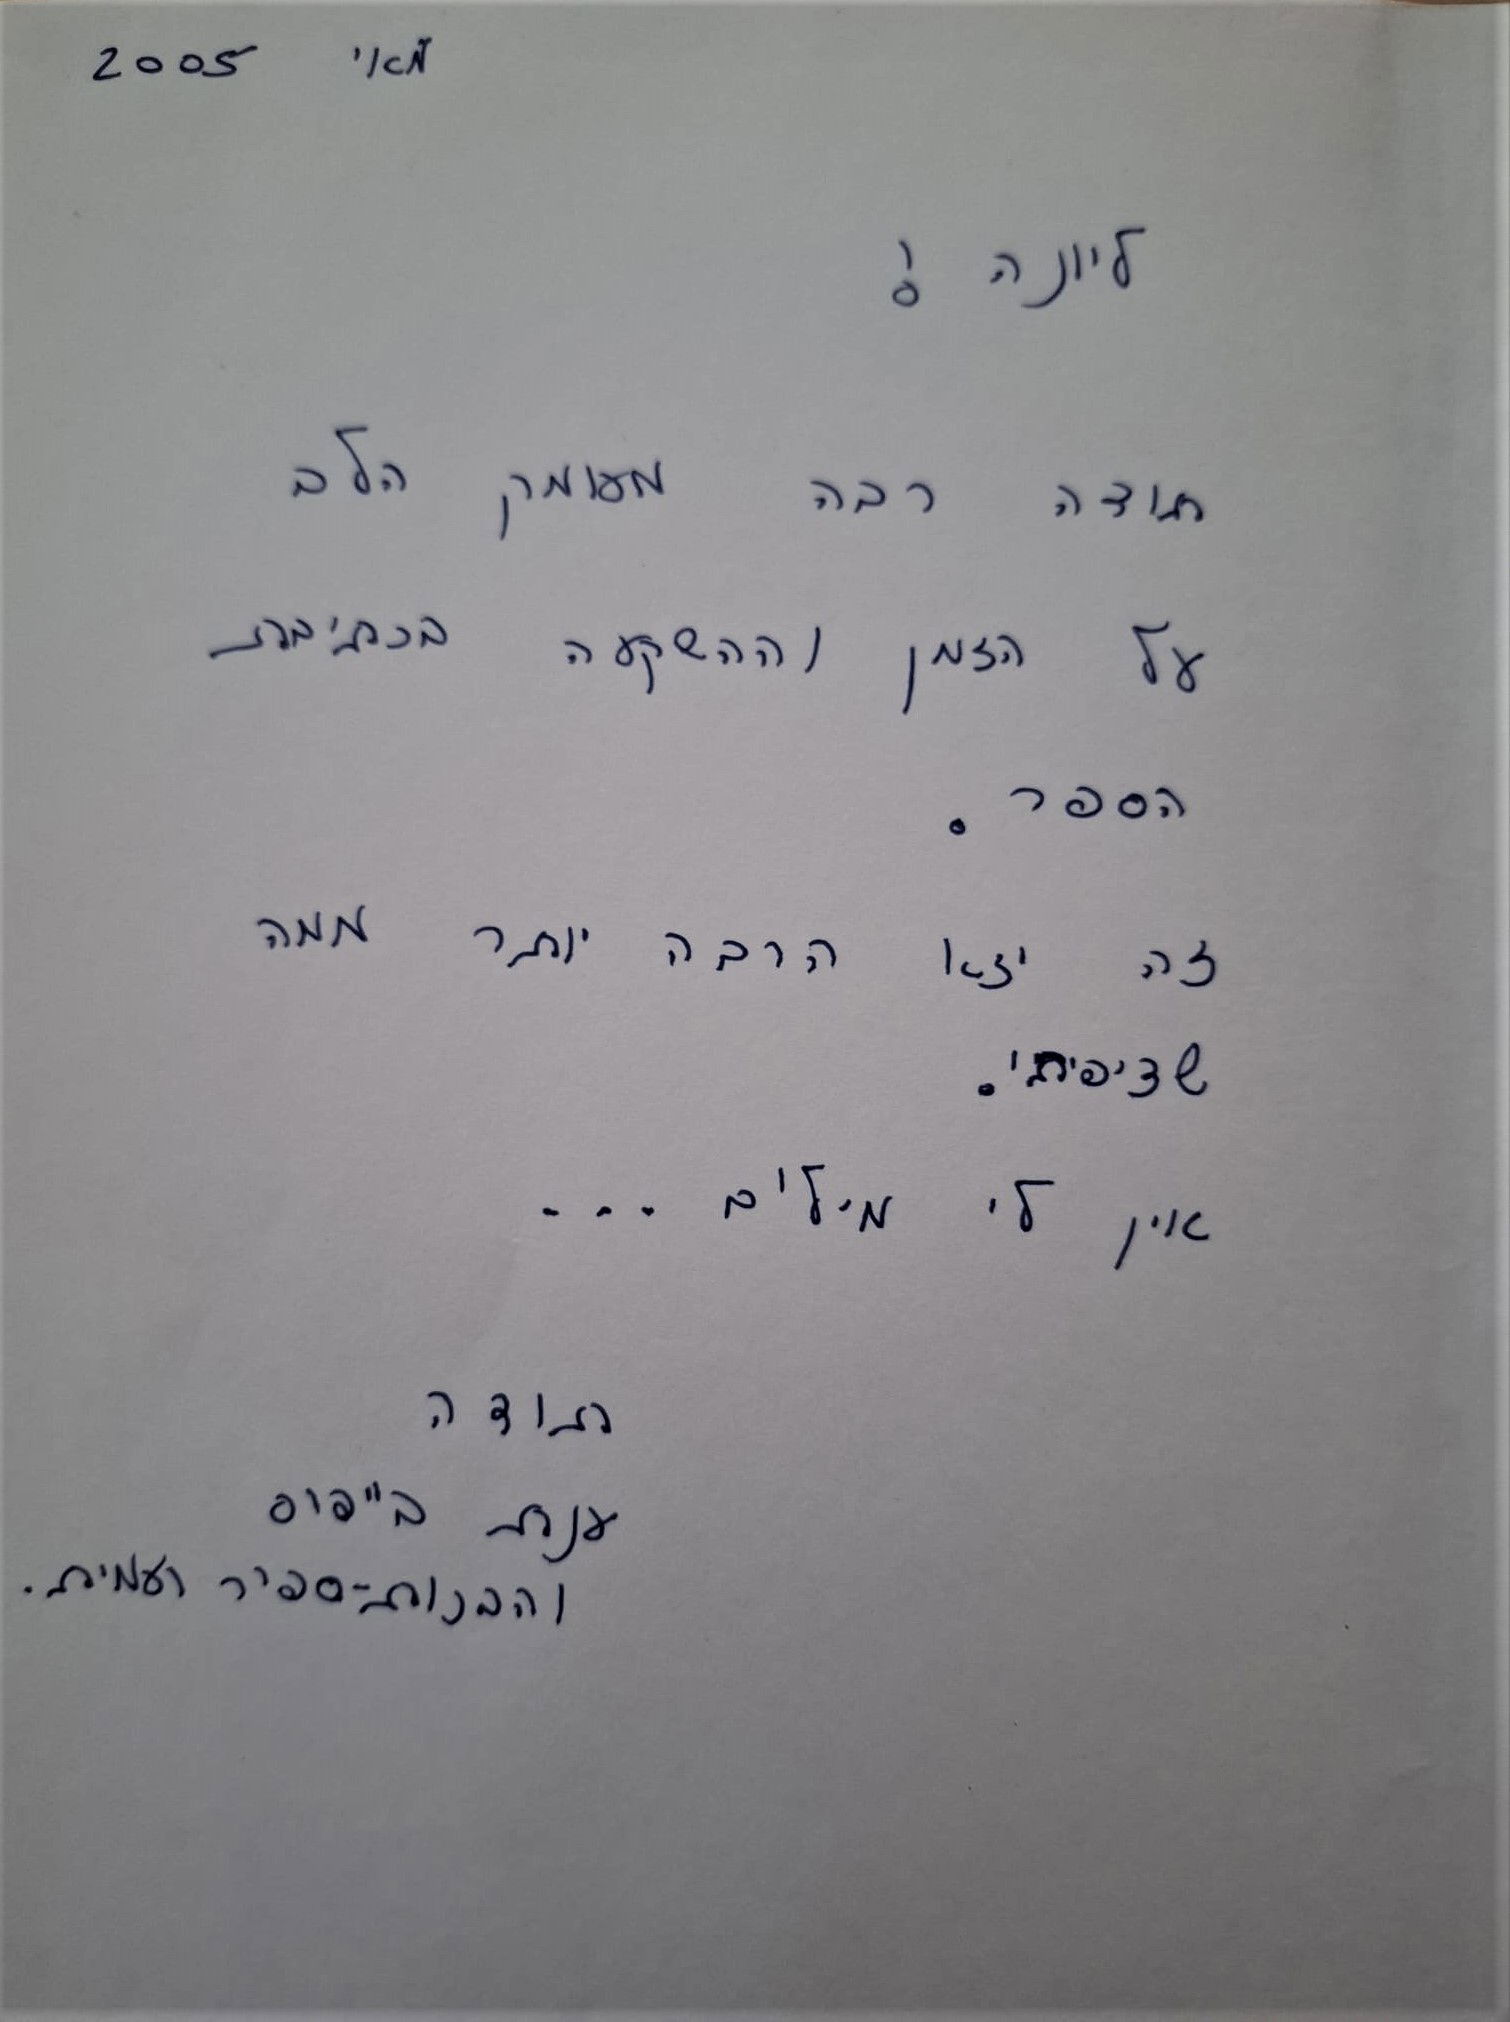 מאי 2005
ליונה !
תודה רבה מעומק הלב
על הזמן וההשקעה בכתיבת
הספר .
זה יצא הרבה יותר ממה
שציפיתי.
אין לי מילים ...
תודה
ענת
והבנות-ספיר ועמית.